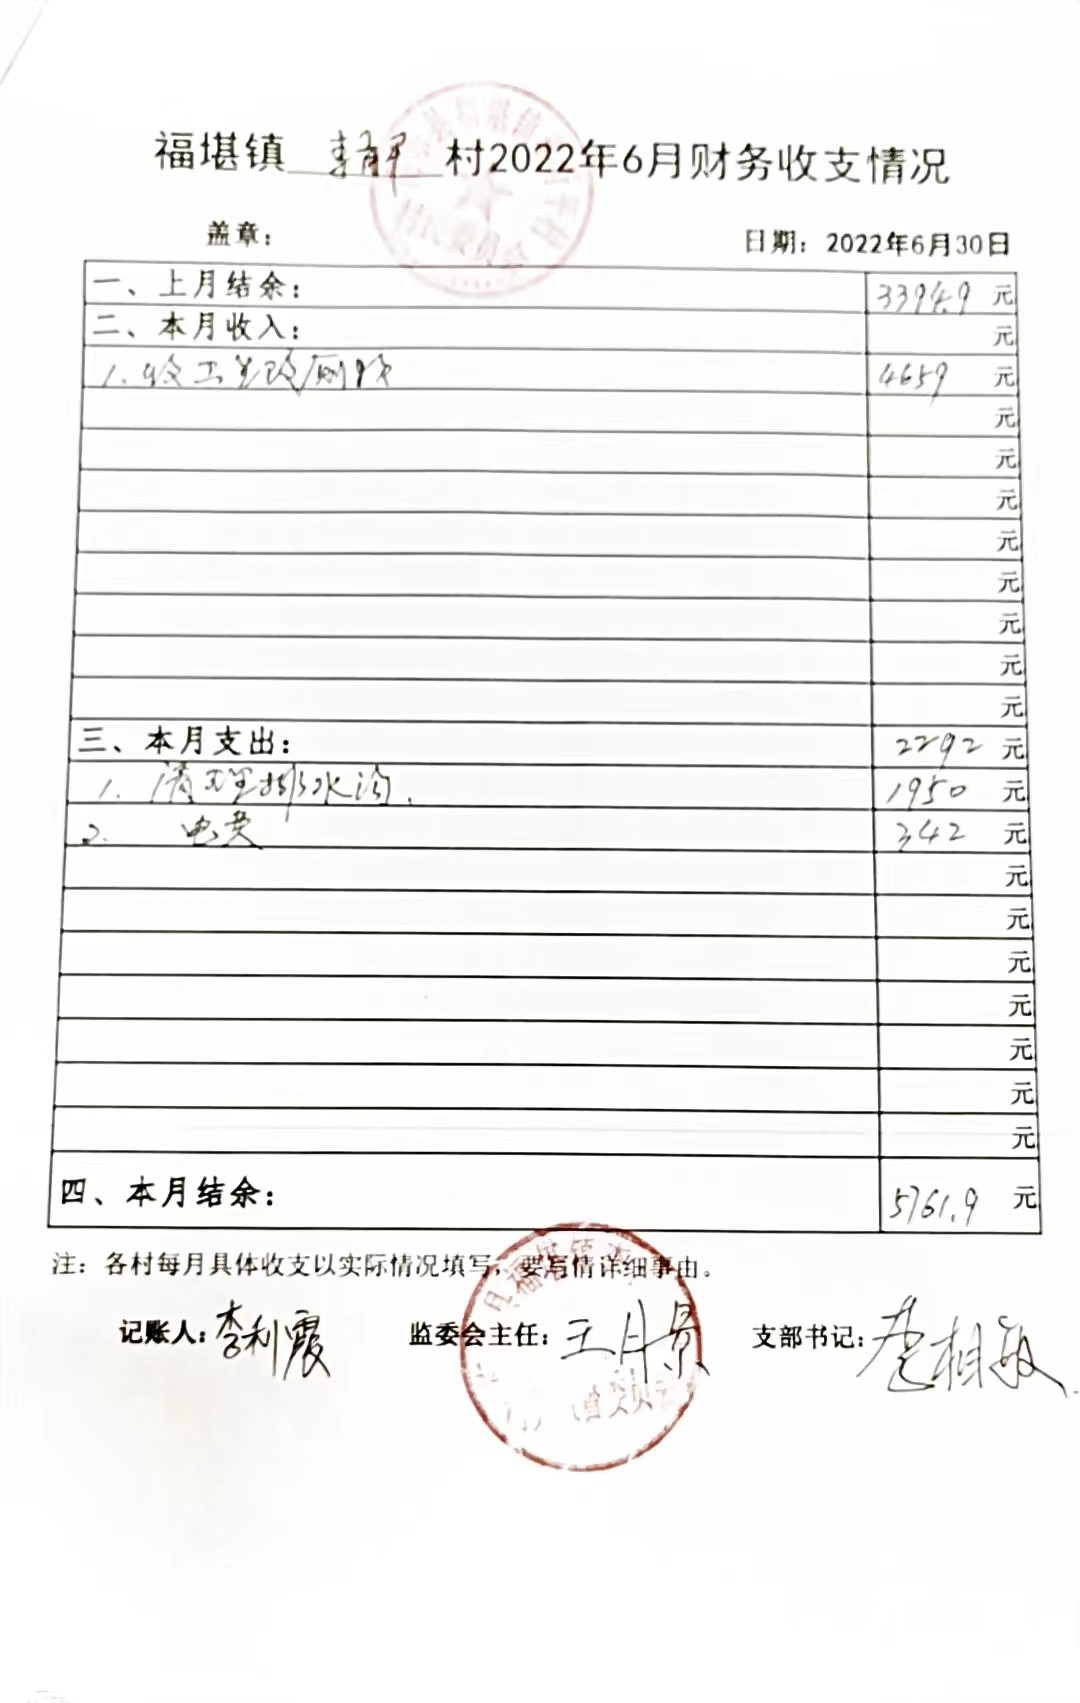 福堪镇 村2022年6月财务收支情况
村民委员会
盖章： 日期：2022年6月30日
一、上月结余： 3394.9 元
二、本月收入： 元
1.收卫生改厕钱 4659 元
元
元
元
元
元
元
元
元
三、本月支出： 2292 元
1. 清理排水沟. 1950 元
2. 电费 342 元
元
元
元
元
元
元
元
四、本月结余： 5761.9 元
注：各村每月具体收支以实际情况填写，要写情详细事由。
福堪镇
记账人：李利霞 监委会主任：王月景 支部书记：相敏
委员会